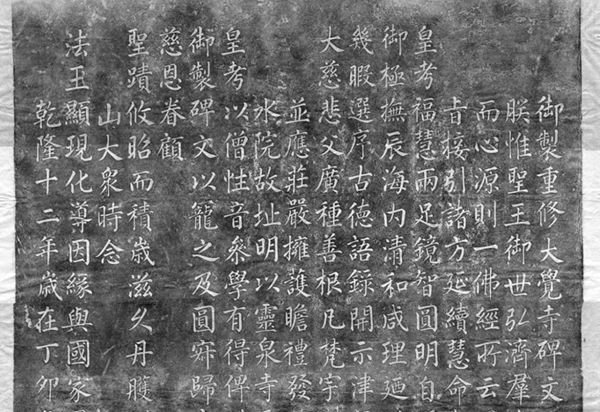 御製重修大覺寺碑文
朕惟聖王御世弘濟羣
而心源則一佛經所云
旨接引諸方延續慧命
皇考福慧兩足鏡智圓明自
御極撫辰海內清和咸理廼
幾暇選序古德語錄開示津
大慈悲父廣種善根凡梵宇
並應莊嚴擁護瞻禮發
水院故址明以靈泉寺
皇考以僧性音參學有得俾
御製碑文以寵之及圓寂歸
慈恩眷顧
聖蹟攸昭而積歲滋久丹雘
山大衆時念
法王顯現化導因緣與國家
乾隆十二年歲在丁卯